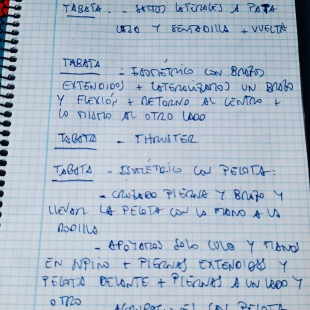 TABATA - SALTOS LATERALES A PATA
COJO Y SENTADILLA + VUELTA
TABATA - ISOMÉTRICO CON BRAZOS
EXTENDIDOS + LATERALIZAMOS UN BRAZO
Y FLEXIÓN + RETORNO AL CENTRO +
LO MISMO AL OTRO LADO
TABATA - THRUSTER
TABATA - ISOMÉTRICO CON PELOTA:
- CRUZADO PIERNA Y BRAZO Y
LLEVAR LA PELOTA CON LA MANO A LA
RODILLA
- APOYAMOS SOLO CULO Y MANOS
EN + PIERNAS EXTENDIDAS Y
PELOTA DELANTE + PIERNAS A UN LADO Y
OTRO
CON PELOTA